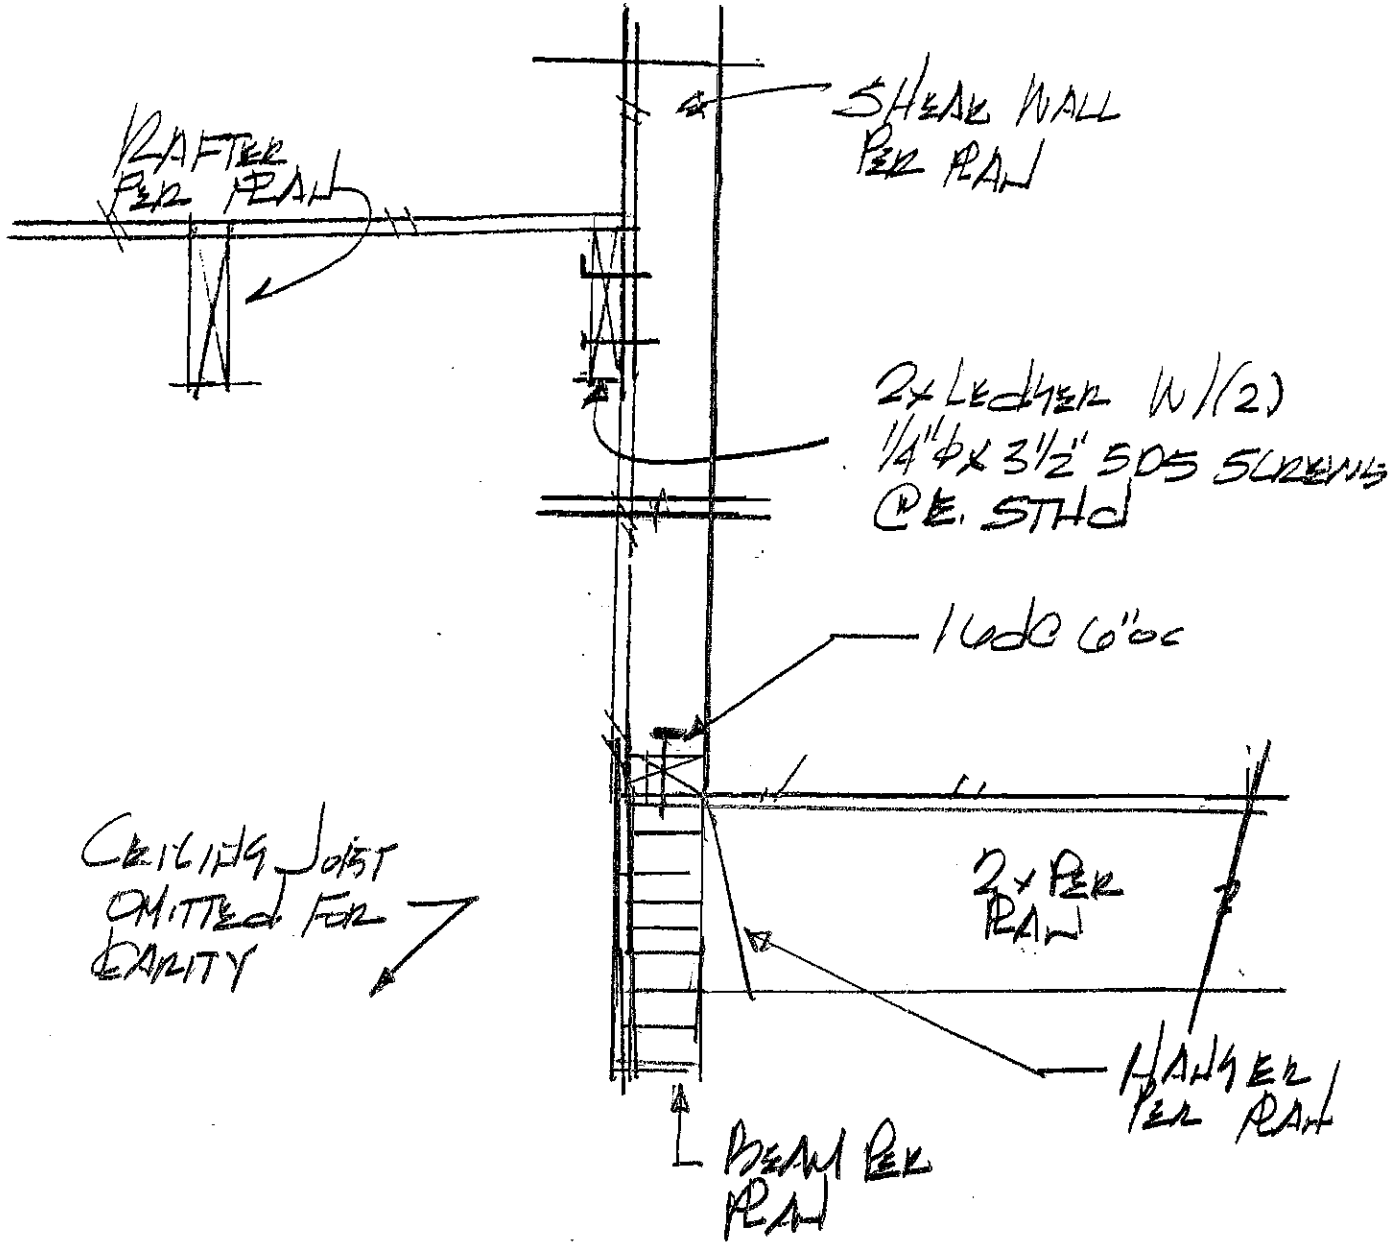 SHEAR WALL
PER PLAN
RAFTER
PER PLAN
2x LEdGER W/(2)
1/4"φ x 3 1/2" SDS SCREWS
@ E. STUd
16d@ 6"oc
CEILING JOIST
OMITTEd FOR
CLARITY
2x PER
PLAN
HANGER
PER PLAN
BEAM PER
PLAN